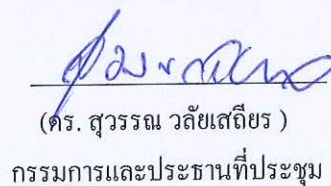 (ดร. สุวรรณ วลัยเสถียร )
กรรมการและประธานที่ประชุม